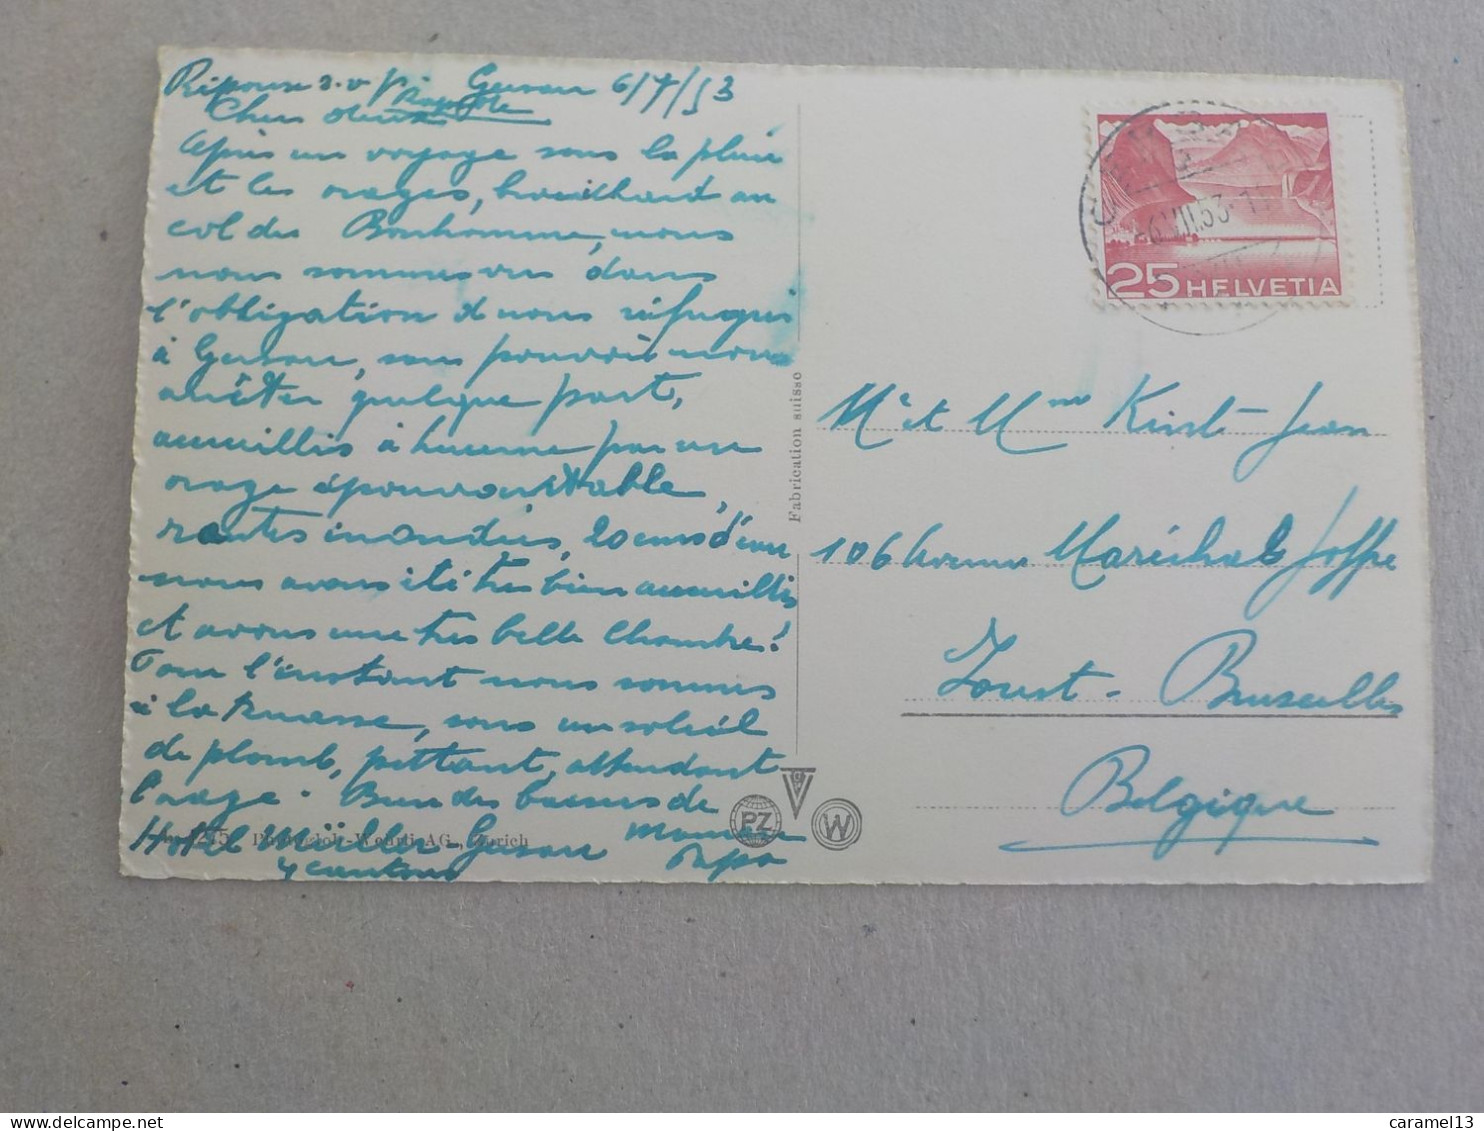 Réponse s.v.p. Gersau 6/7/53
Chers deux
Après un voyage sous la pluie
et les orages, brouillard au
col du Bonhomme, nous
nous sommes vus dans
l'obligation de nous réfugier
à Gersau, sans pouvoir nous
arrêter quelque part,
accueillis à Lucerne par un
orage épouvantable,
routes inondées, 20 cms d'eau
nous avons été très bien accueillis
et avons une très belle chambre!
Pour l'instant nous sommes
à la terrasse, sous un soleil
de plomb, attendant
l'orage. Bons baisers de
Maman
Papa
Hotel Müller Gersau
4 cantons
Fabrication suisse
Wehrli AG., Zürich
PZ
W
6.VII.53
25 HELVETIA
Mr et Mme Kint Jean
106 Avenue Maréchal Joffre
Forest - Bruxelles
Belgique
caramel13